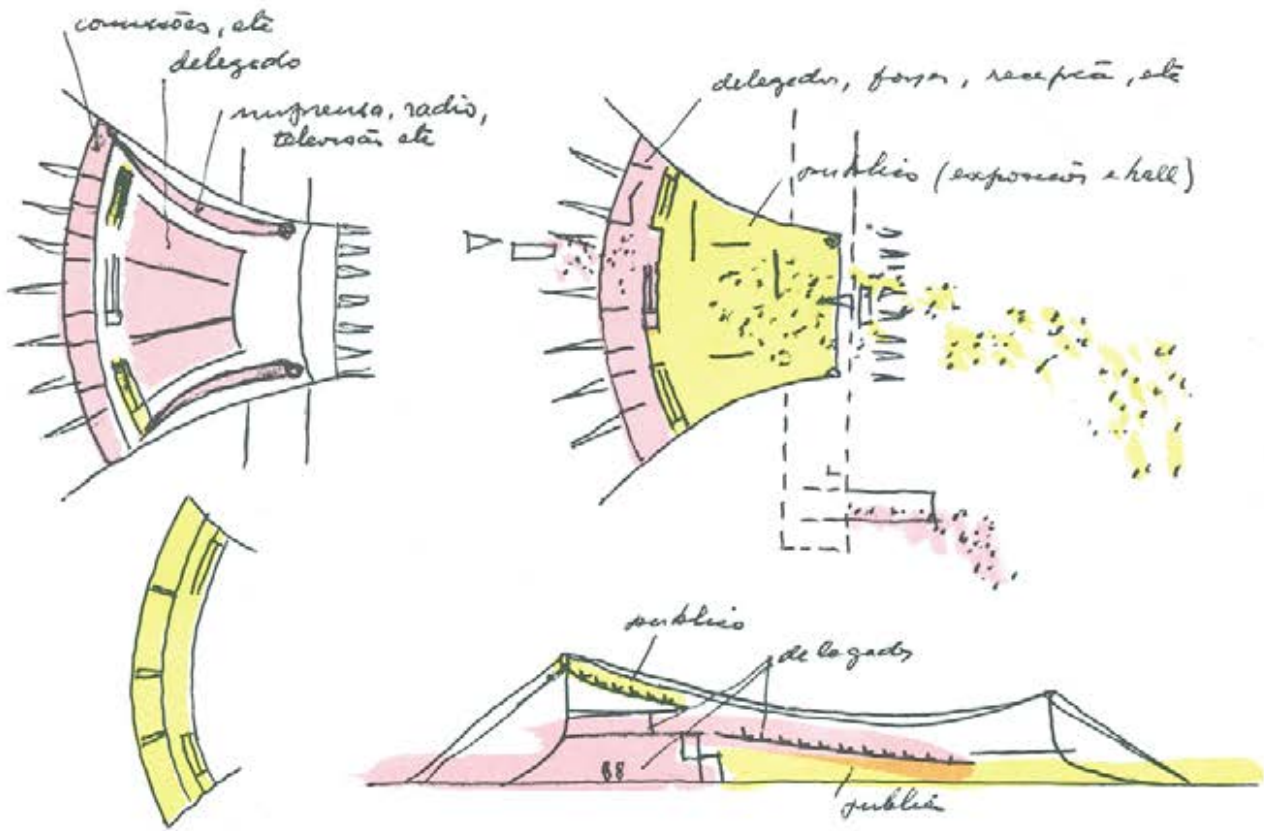 comissões, etc
delegado
imprensa, radio,
televisão etc
delegados, foyer, recepção, etc
publico (exposições e hall)
publico
delegados
publico